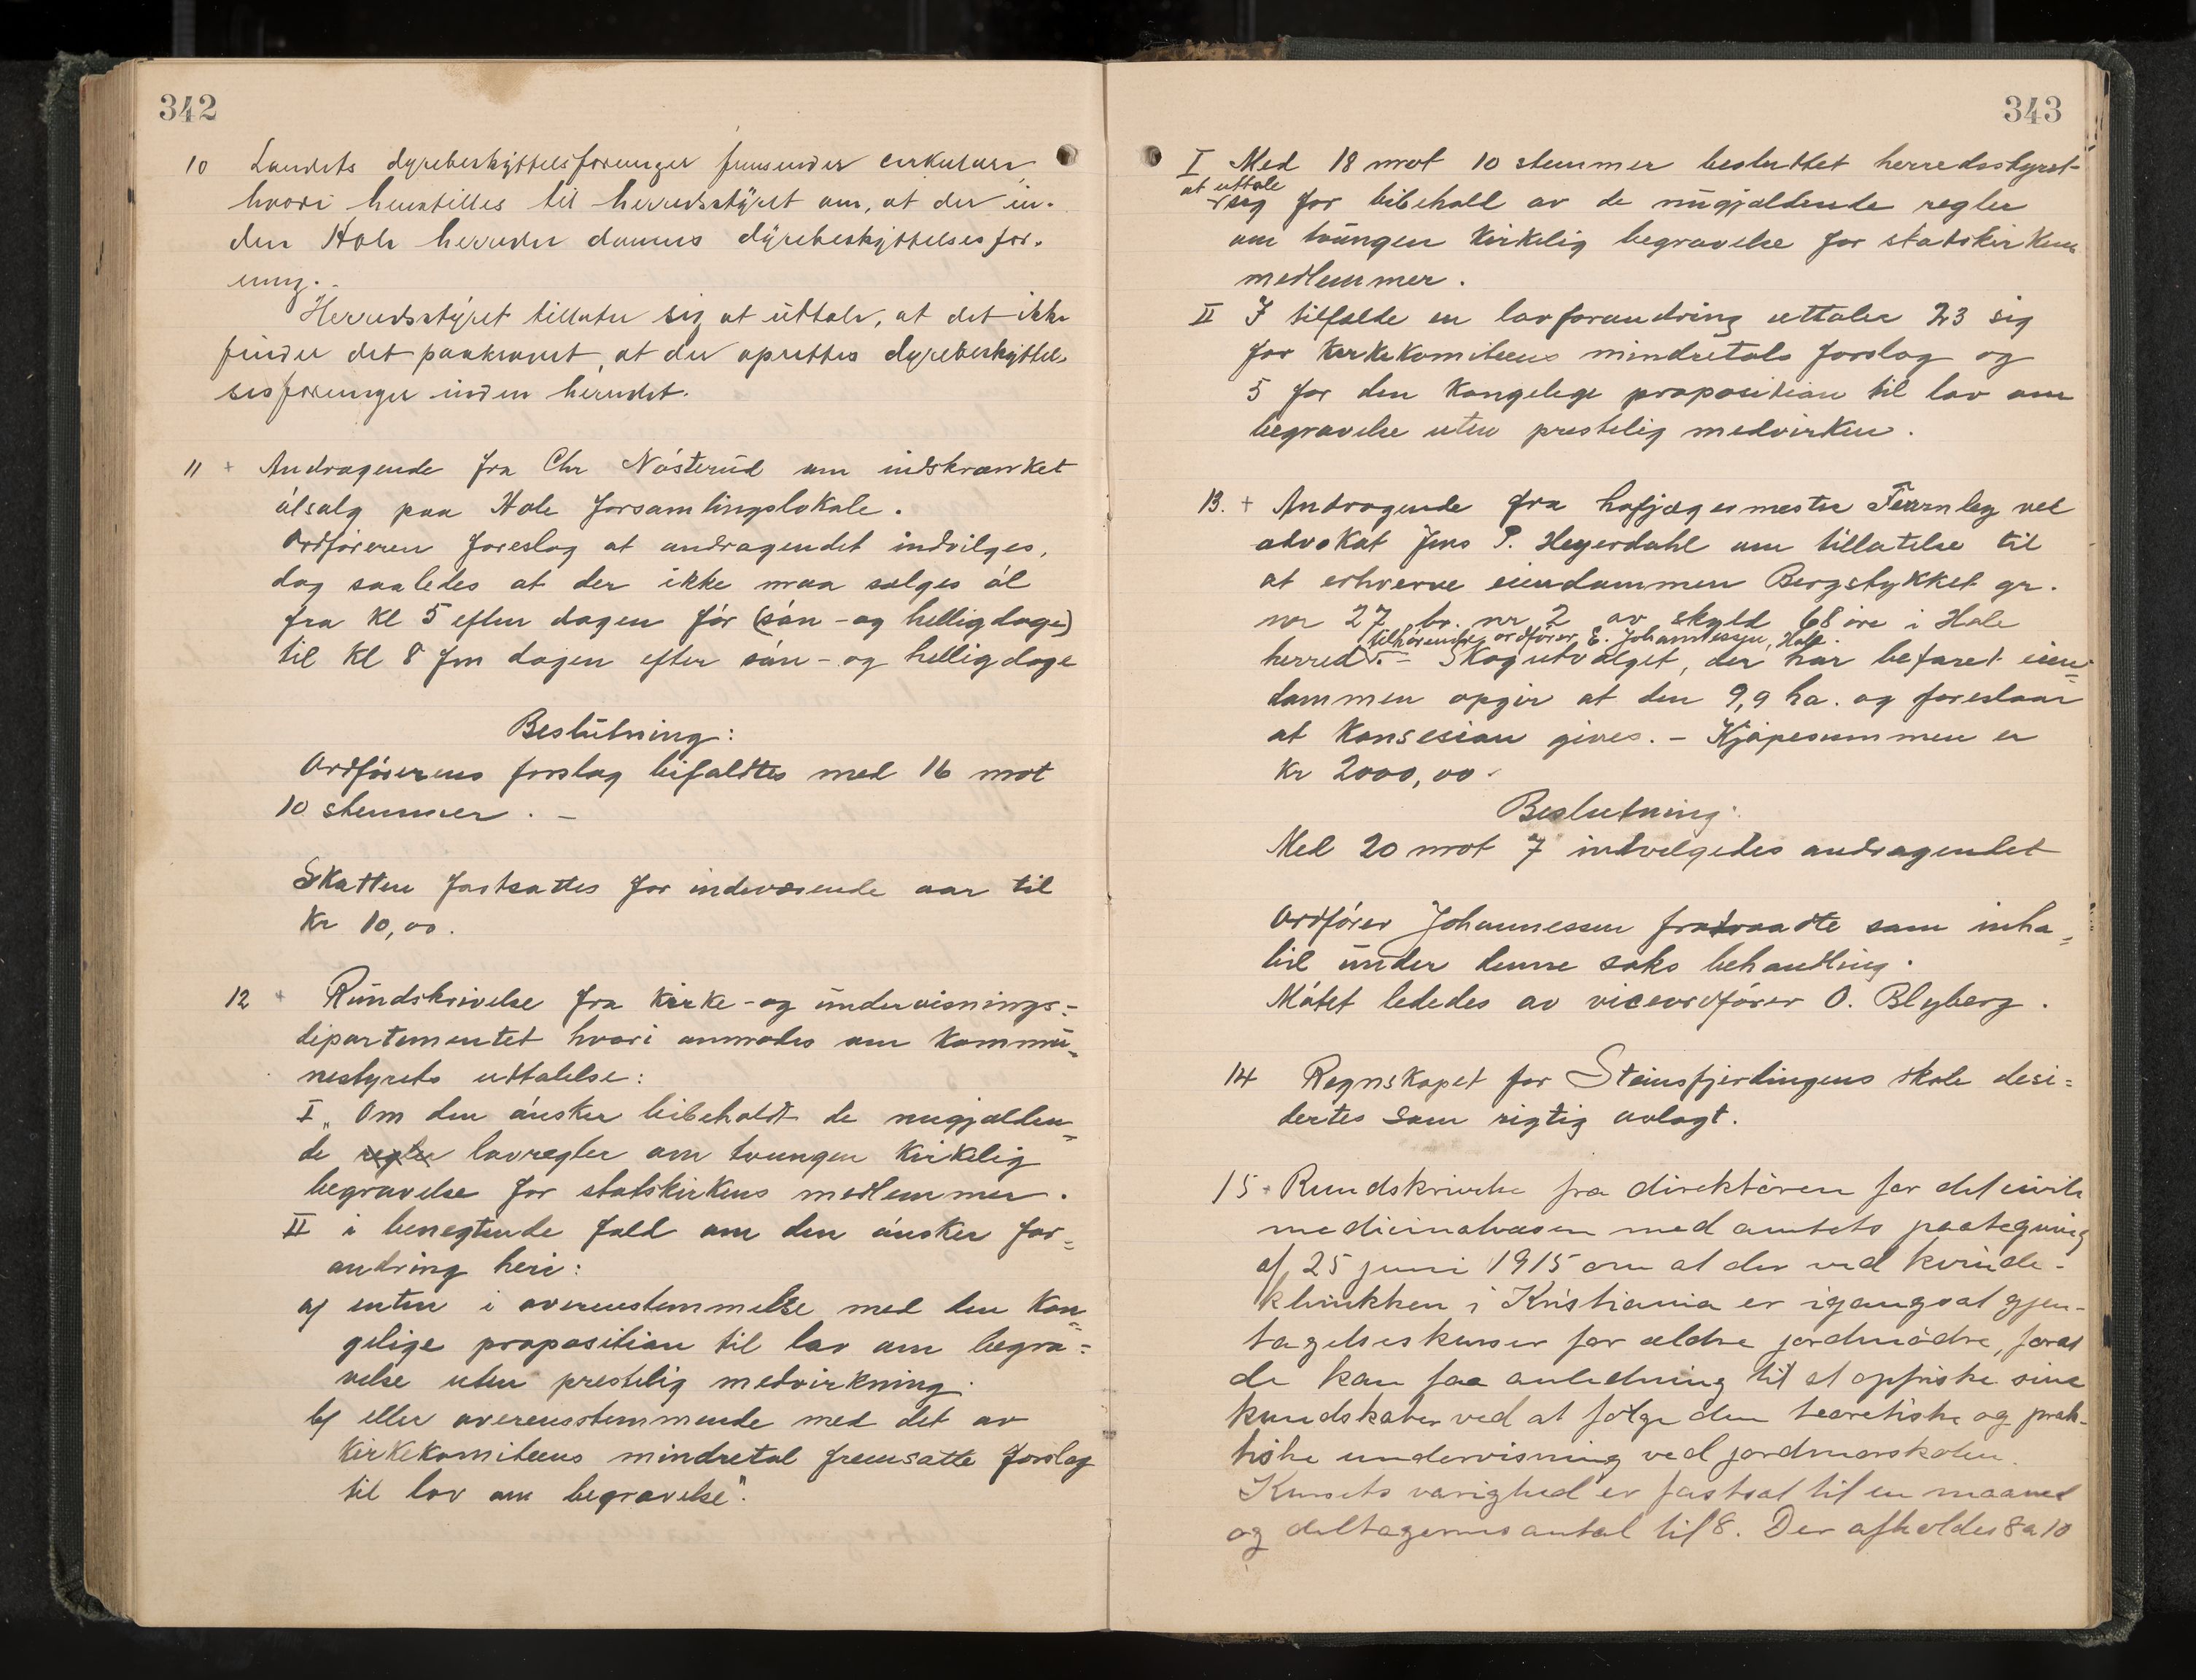 342
10 Landets dyrebeskyttelsesforeninger fremsender cirkulære,
hvori henstilles til herredsstyret om, at der in-
den Hole herreder dannes dyrebeskyttelsesfor-
ening.
Herredsstyret tillater sig at uttale, at det ikke
finder det paakrævet, at der oprettes dyrebeskyttel-
sesforeninger inden herredet.
11 + Andragende fra Chr Nøsterud om indskrænket
ølsalg paa Hole forsamlingslokale.
Ordføreren foreslog at andragendet indvilges,
dog saaledes at der ikke maa sælges øl
fra Kl 5 eftm dagen før (søn- og helligdage)
til Kl 8 fm dagen efter søn- og helligdage
Beslutning:
Ordførerens forslag bifaldtes med 16 mot
10 stemmer. –
Skatten fastsattes for indeværende aar til
Kr 10,00.
12 + Rundskrivelse fra Kirke- og undervisnings=
departementet hvori anmodes om Kommu=
nestyrets uttalelse:
I „Om den ønsker bibeholdt de nugjælden=
de regler lovregler om tvungen Kirkelig
begravelse for statskirkens medlemmer.
II i benegtende fald om den ønsker for=
andring heri:
a) enten i overenstemmelse med den Kon=
gelige proposition til lov om begra=
velse uten prestelig medvirkning.
b) eller overensstemmende med det av
Kirkekomiteens mindretal fremsatte forslag
til lov om begravelse".
343
I Med 18 mot 10 stemmer besluttet herredsstyret
at uttale
sig for bibehold av de nugjældende regler
om tvungen Kirkelig begravelse for statskirkens
medlemmer.
II I tilfælde en lovforandring uttaler 23 sig
for Kirkekomiteens mindretals forslag og
5 for den Kongelige proposition til lov om
begravelse uten prestelig medvirken.
13. + Andragende fra hofjægermester Fearnley ved
advokat Jens P. Heyerdahl om tillatelse til
at erhverve eiendommen Bergstykket gr.
nr 27 br. nr 2 av skyld 68 øre i Hole
tilhørende ordfører E. Johannessen, Hole.
herred. – Skogutvalget, der har befaret eien=
dommen opgir at den 9,9 ha. og foreslaar
at Konsesion gives. – Kjøpesummen er
Kr 2000,00.
Beslutning:
Med 20 mot 7 indvelgedes andragendet
Ordfører Johannessen fratraadte som inha=
bil under denne saks behandling.
Møtet lededes av viceordfører O. Blyberg.
14 Regnskapet for Steinsfjerdingens skole desi=
dertes som rigtig avlagt.
15 + Rundskrivelse fra direktøren for det civile
medicinalvæsen med amtets paategning
af 25 juni 1915 om at der ved kvinde-
klinikken i Kristiania er igangsat gjen-
tagelseskurser for ældre jordmødre, forat
de kan faa anledning til at opfriske sine
kundskaber ved at følge den teoretiske og prak-
tiske undervisning ved jordmorskolen.
Kursets varighed er fastsat til en maaned
og deltagernes antal til 8. Der afholdes 8 a 10